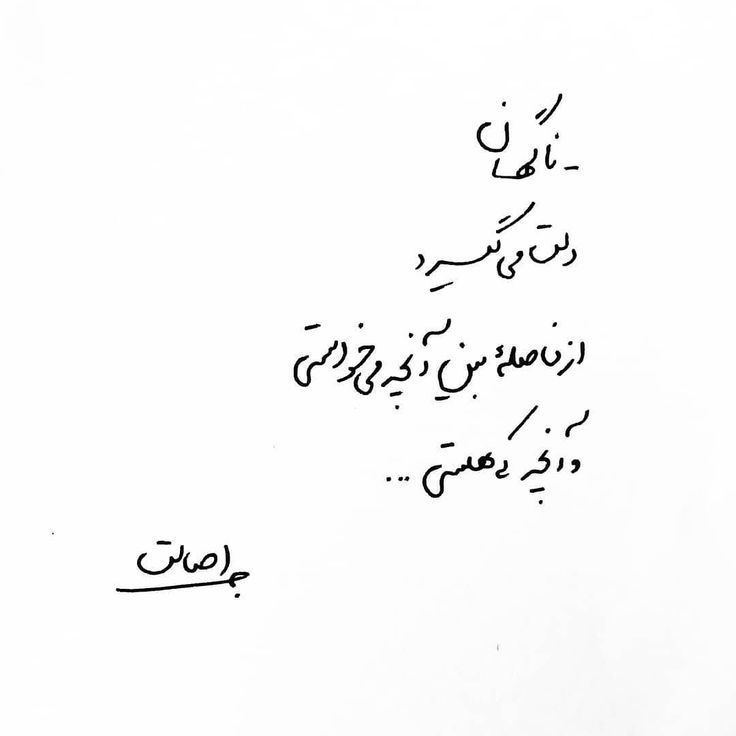 - ناگهان
دلت می‌گیرد
از فاصلهٔ بین آنچه می‌خواستی
و آنچه که هستی ...
اصالت